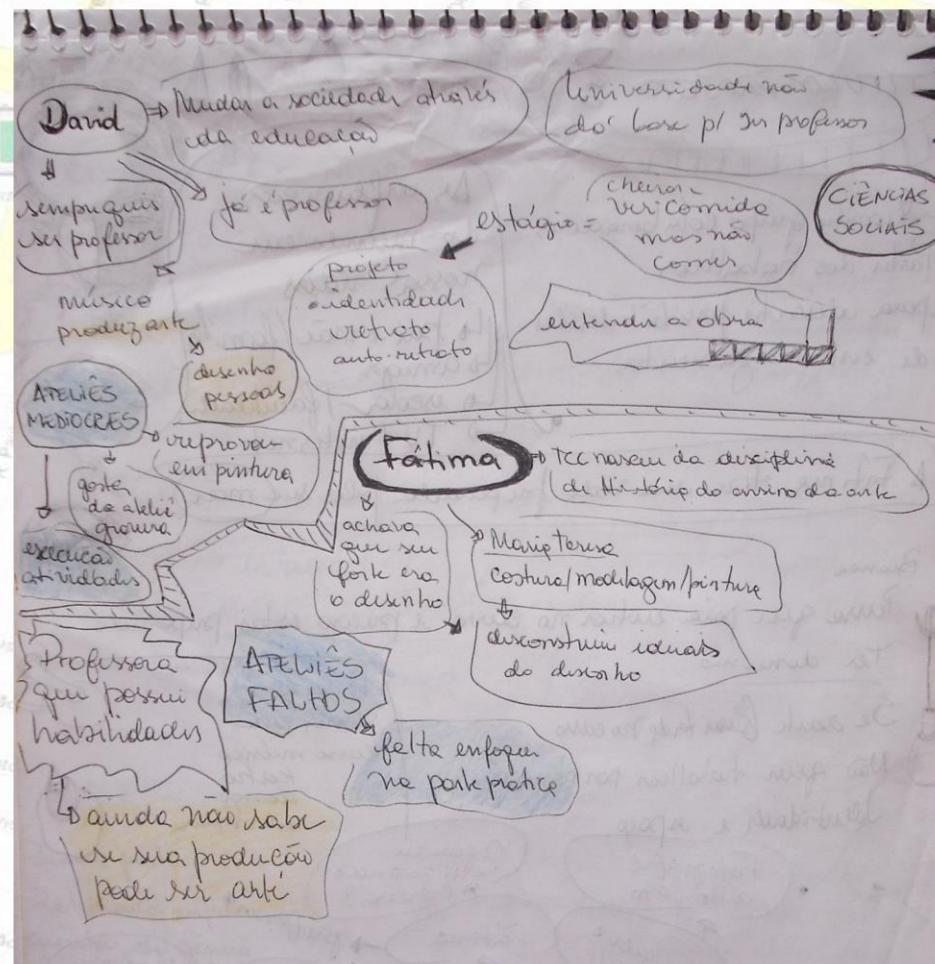 David
Mudar a sociedade através
da educação
Universidade não
dá base p/ ser professor
sempre quis
ser professor
já é professor
estágio =
cheirar
ver comida
mas não
comer
CIÊNCIAS
SOCIAIS
projeto
identidade
retrato
auto-retrato
entender a obra
músico
produz arte
desenho
pessoas
ATELIÊS
MEDÍOCRES
reprovou
em pintura
gosta
do ateliê
gravura
execução
atividades
Fátima
TCC nasceu da disciplina
de História do ensino da arte
achava
que seu
forte era
o desenho
Maria Teresa
costura/modelagem/pintura
desconstruiu ideais
do desenho
Professora
que possui
habilidades
ATELIÊS
FALHOS
falta enfoque
na parte prática
ainda não sabe
se sua produção
pode ser arte